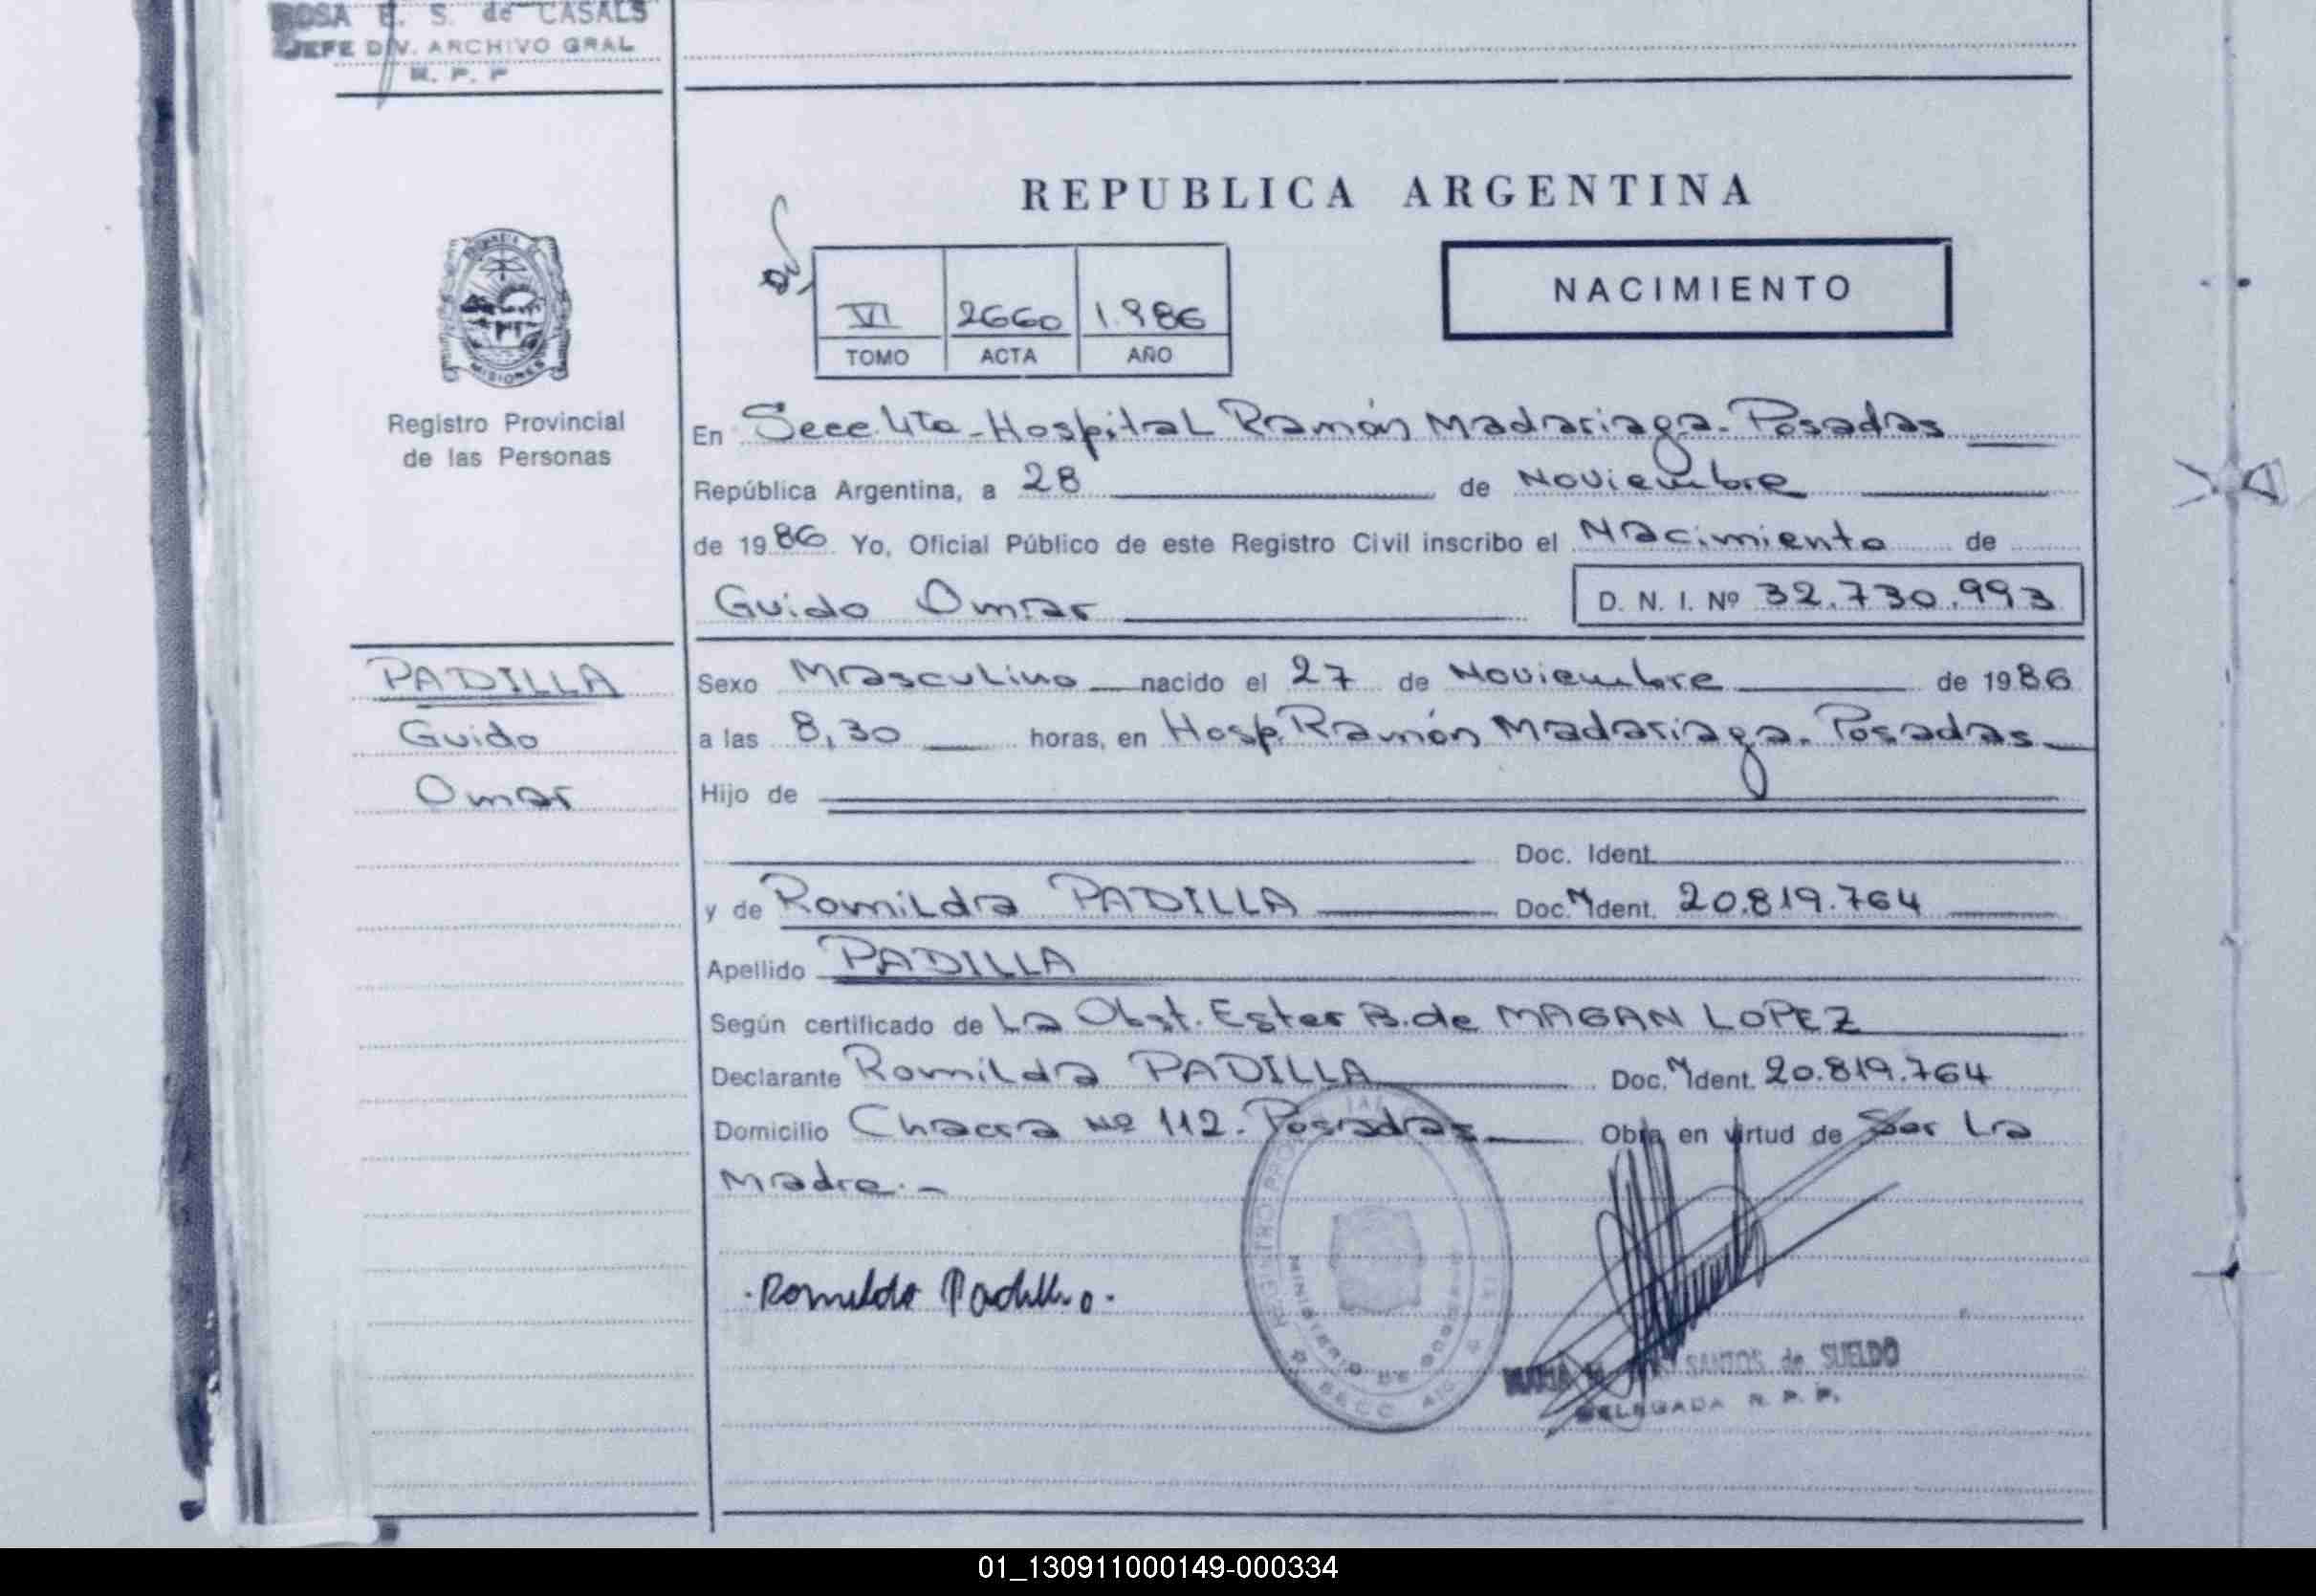 ROSA E. S. de CASALS
JEFE DIV. ARCHIVO GRAL
R. P. P
REPUBLICA ARGENTINA
NACIMIENTO
VI 2660 1.986
TOMO ACTA AÑO
MISIONES
Registro Provincial
de las Personas
En Secc 4ta - Hospital Ramón Madariaga - Posadas
República Argentina, a 28 de Noviembre
de 1986 Yo, Oficial Público de este Registro Civil inscribo el Nacimiento de
Guido Omar D. N. I. Nº 32.730.993
PADILLA
Guido
Omar
Sexo Masculino nacido el 27 de Noviembre de 1986
a las 8,30 horas, en Hosp. Ramón Madariaga. Posadas
Hijo de
Doc. Ident.
y de Romilda PADILLA Doc. M Ident. 20.819.764
Apellido PADILLA
Según certificado de La Obst. Ester B. de MAGAN LOPEZ
Declarante Romilda PADILLA Doc. M Ident. 20.819.764
Domicilio Chacra Nº 112. Posadas Obra en virtud de Ser La
Madre. -
Romilda Padilla
MINISTERIO DE GOBIERNO
SANTOS de SUELDO
DELEGADA R. P. P.
01_130911000149-000334